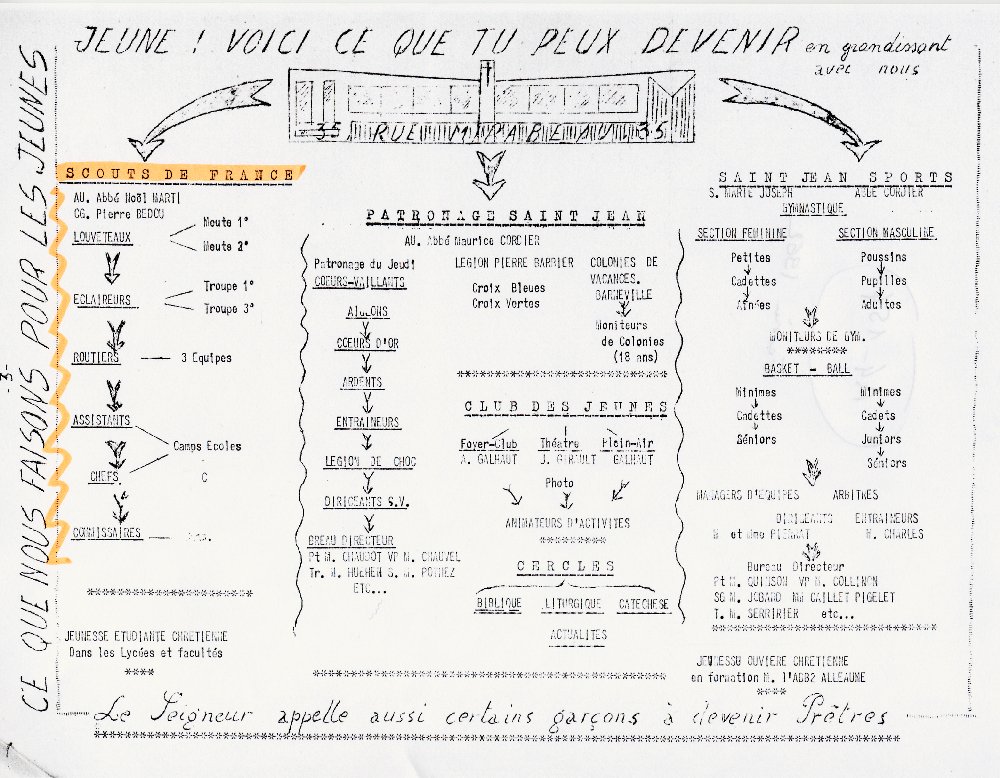 JEUNE ! VOICI CE QUE TU PEUX DEVENIR en grandissant
avec nous
35 RUE MIRABEAU 35
CE QUE NOUS FAISONS POUR LES JEUNES
-3-
SCOUTS DE FRANCE
AU. Abbé Noël MARTI
CG. Pierre BEDOU
LOUVETEAUX
Meute 1°
Meute 2°
ECLAIREURS
Troupe 1°
Troupe 3°
ROUTIERS
3 Equipes
ASSISTANTS
Camps Ecoles
CHEFS
C
COMMISSAIRES
JEUNESSE ETUDIANTE CHRETIENNE
Dans les Lycées et facultés
****
PATRONAGE SAINT JEAN
AU. Abbé Maurice CORDIER
Patronage du Jeudi
COEURS-VAILLANTS
AIGLONS
COEURS D'OR
ARDENTS
ENTRAINEURS
LEGION DE CHOC
DIRIGEANTS S.V.
BREAU DIRECTEUR
Pt M. CHAUDOT VP M. CHAUVEL
Tr. M. HUEHEN S. M. POTHEZ
ETC...
LEGION PIERRE BARBIER
Croix Bleues
Croix Vertes
COLONIES DE
VACANCES.
BARNEVILLE
Moniteurs
de Colonies
(18 ans)
CLUB DES JEUNES
Foyer-Club Théatre Plein-Air
A. GALHAUT J. GIRAULT GALHAUT
Photo
ANIMATEURS D'ACTIVITES
********
CERCLES
BIBLIQUE LITURGIQUE CATECHESE
ACTUALITES
SAINT JEAN SPORTS
S. MARIE JOSEPH ABBE CORDIER
GYMNASTIQUE
SECTION FEMININE SECTION MASCULINE
Petites Poussins
Cadettes Pupilles
Aînées Adultes
MONITEURS DE GYM.
********
BASKET - BALL
Minimes Minimes
Cadettes Cadets
Séniors Juniors
Séniors
MANAGERS D'EQUIPES ARBITRES
DIRIGEANTS ENTRAINEURS
M et Mme PIERRAT M. CHARLES
Bureau Directeur
Pt M. QUINSON VP M. COLLINON
SG M. JOBARD MM CAILLET PIGELET
T. M. SERRIRIER etc...
JEUNESSU OUVIERE CHRETIENNE
en formation M. l'ABB2 ALLEAUME
****
Le Seigneur appelle aussi certains garçons à devenir Prêtres